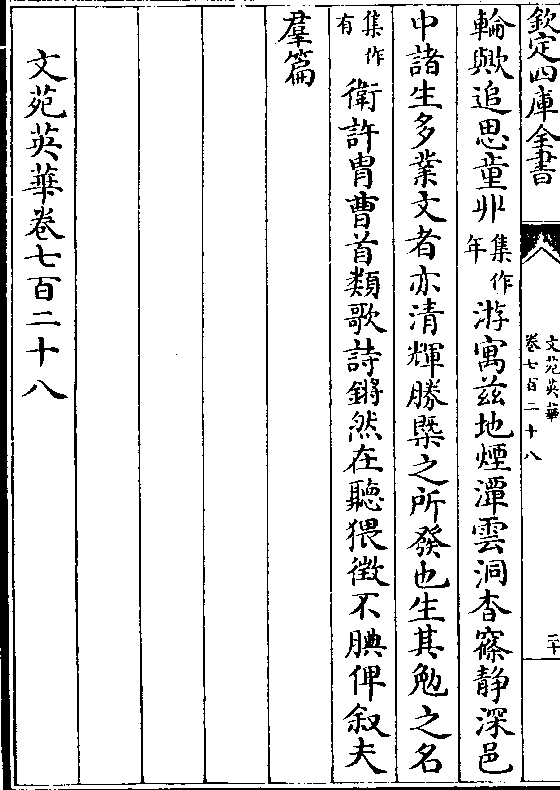 欽定四庫全書
文苑英華
卷七百二十八
二十
輪歟追思童丱集作年游寓兹地煙潭雲洞杳窱静深邑
中諸生多業文者亦清輝勝槩之所發也生其勉之名
集作有衛許胄曹首類歌詩鏘然在聽猥徴不腆俾叙夫
羣篇
文苑英華卷七百二十八